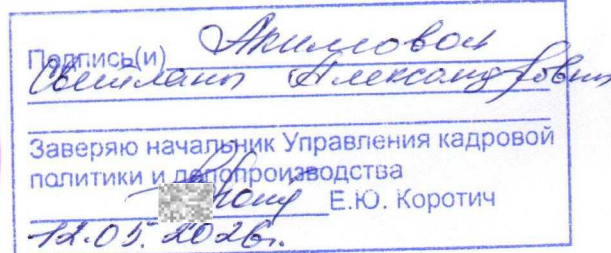 Подпись(и) Акимовой
Светланы Александровны
Заверяю начальник Управления кадровой
политики и делопроизводства
Е.Ю. Коротич
12.05.2026г.